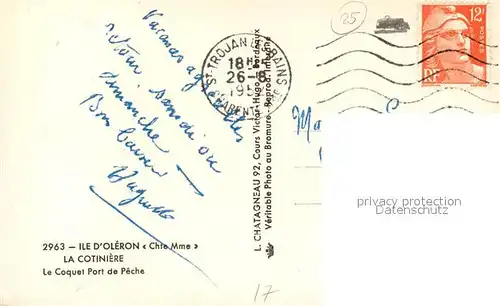 25
12F
POSTES
RF
ST TROJAN LES BAINS
18H
26-6
19
Vacances agréables
retour samedi ou
dimanche
Bon baiser
Huguette
L. CHATAGNEAU 92, Cours Victor-Hugo - Bordeaux
Véritable Photo au Bromure - Reprod. Interdite
privacy protection
Datenschutz
2963 — ILE D'OLÉRON « Chte Mme »
LA COTINIÈRE
Le Coquet Port de Pêche
17